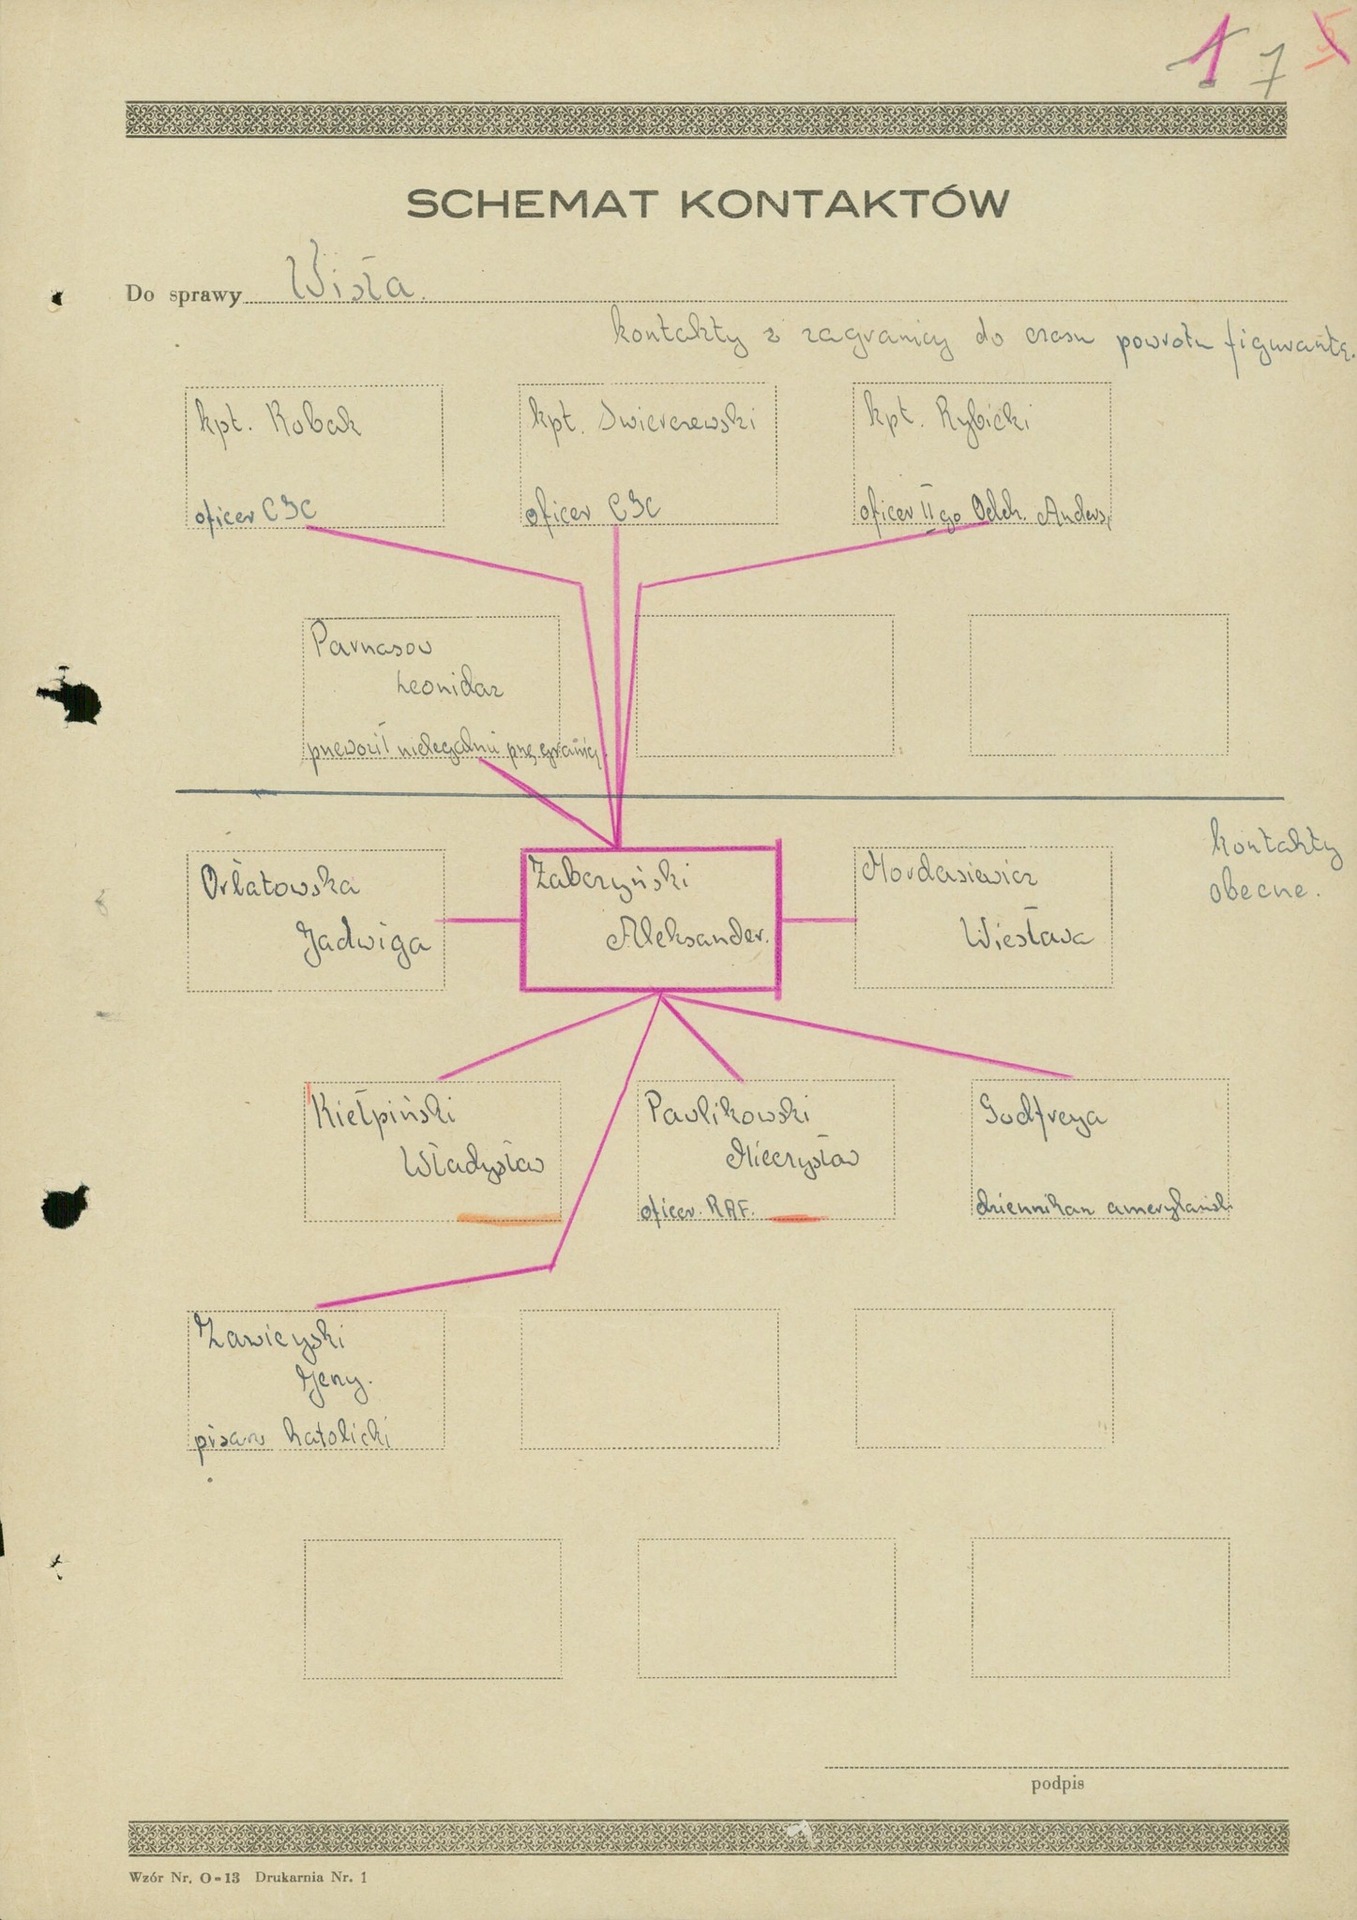 1 7 5
SCHEMAT KONTAKTÓW
Do sprawy Wisła.
kontakty z zagranicy do czasu powrotu figuranta.
kpt. Robak
oficer CJC
kpt. Swierczewski
oficer CJC
kpt. Rybicki
oficer II go Oddz. Andersa
Parnasow
Leonidas
przewoził nielegalnie prz. granicę.
Orłatowska
Jadwiga
Żabczyński
Aleksander.
Mordasiewicz
Wiesława
kontakty
obecne.
Kiełpiński
Władysław
Pawlikowski
Mieczysław
oficer. RAF.
Godfreya
dziennikarz amerykański
Zawieyski
Jerzy.
pisarz katolicki
podpis
Wzór Nr. O-13 Drukarnia Nr. 1